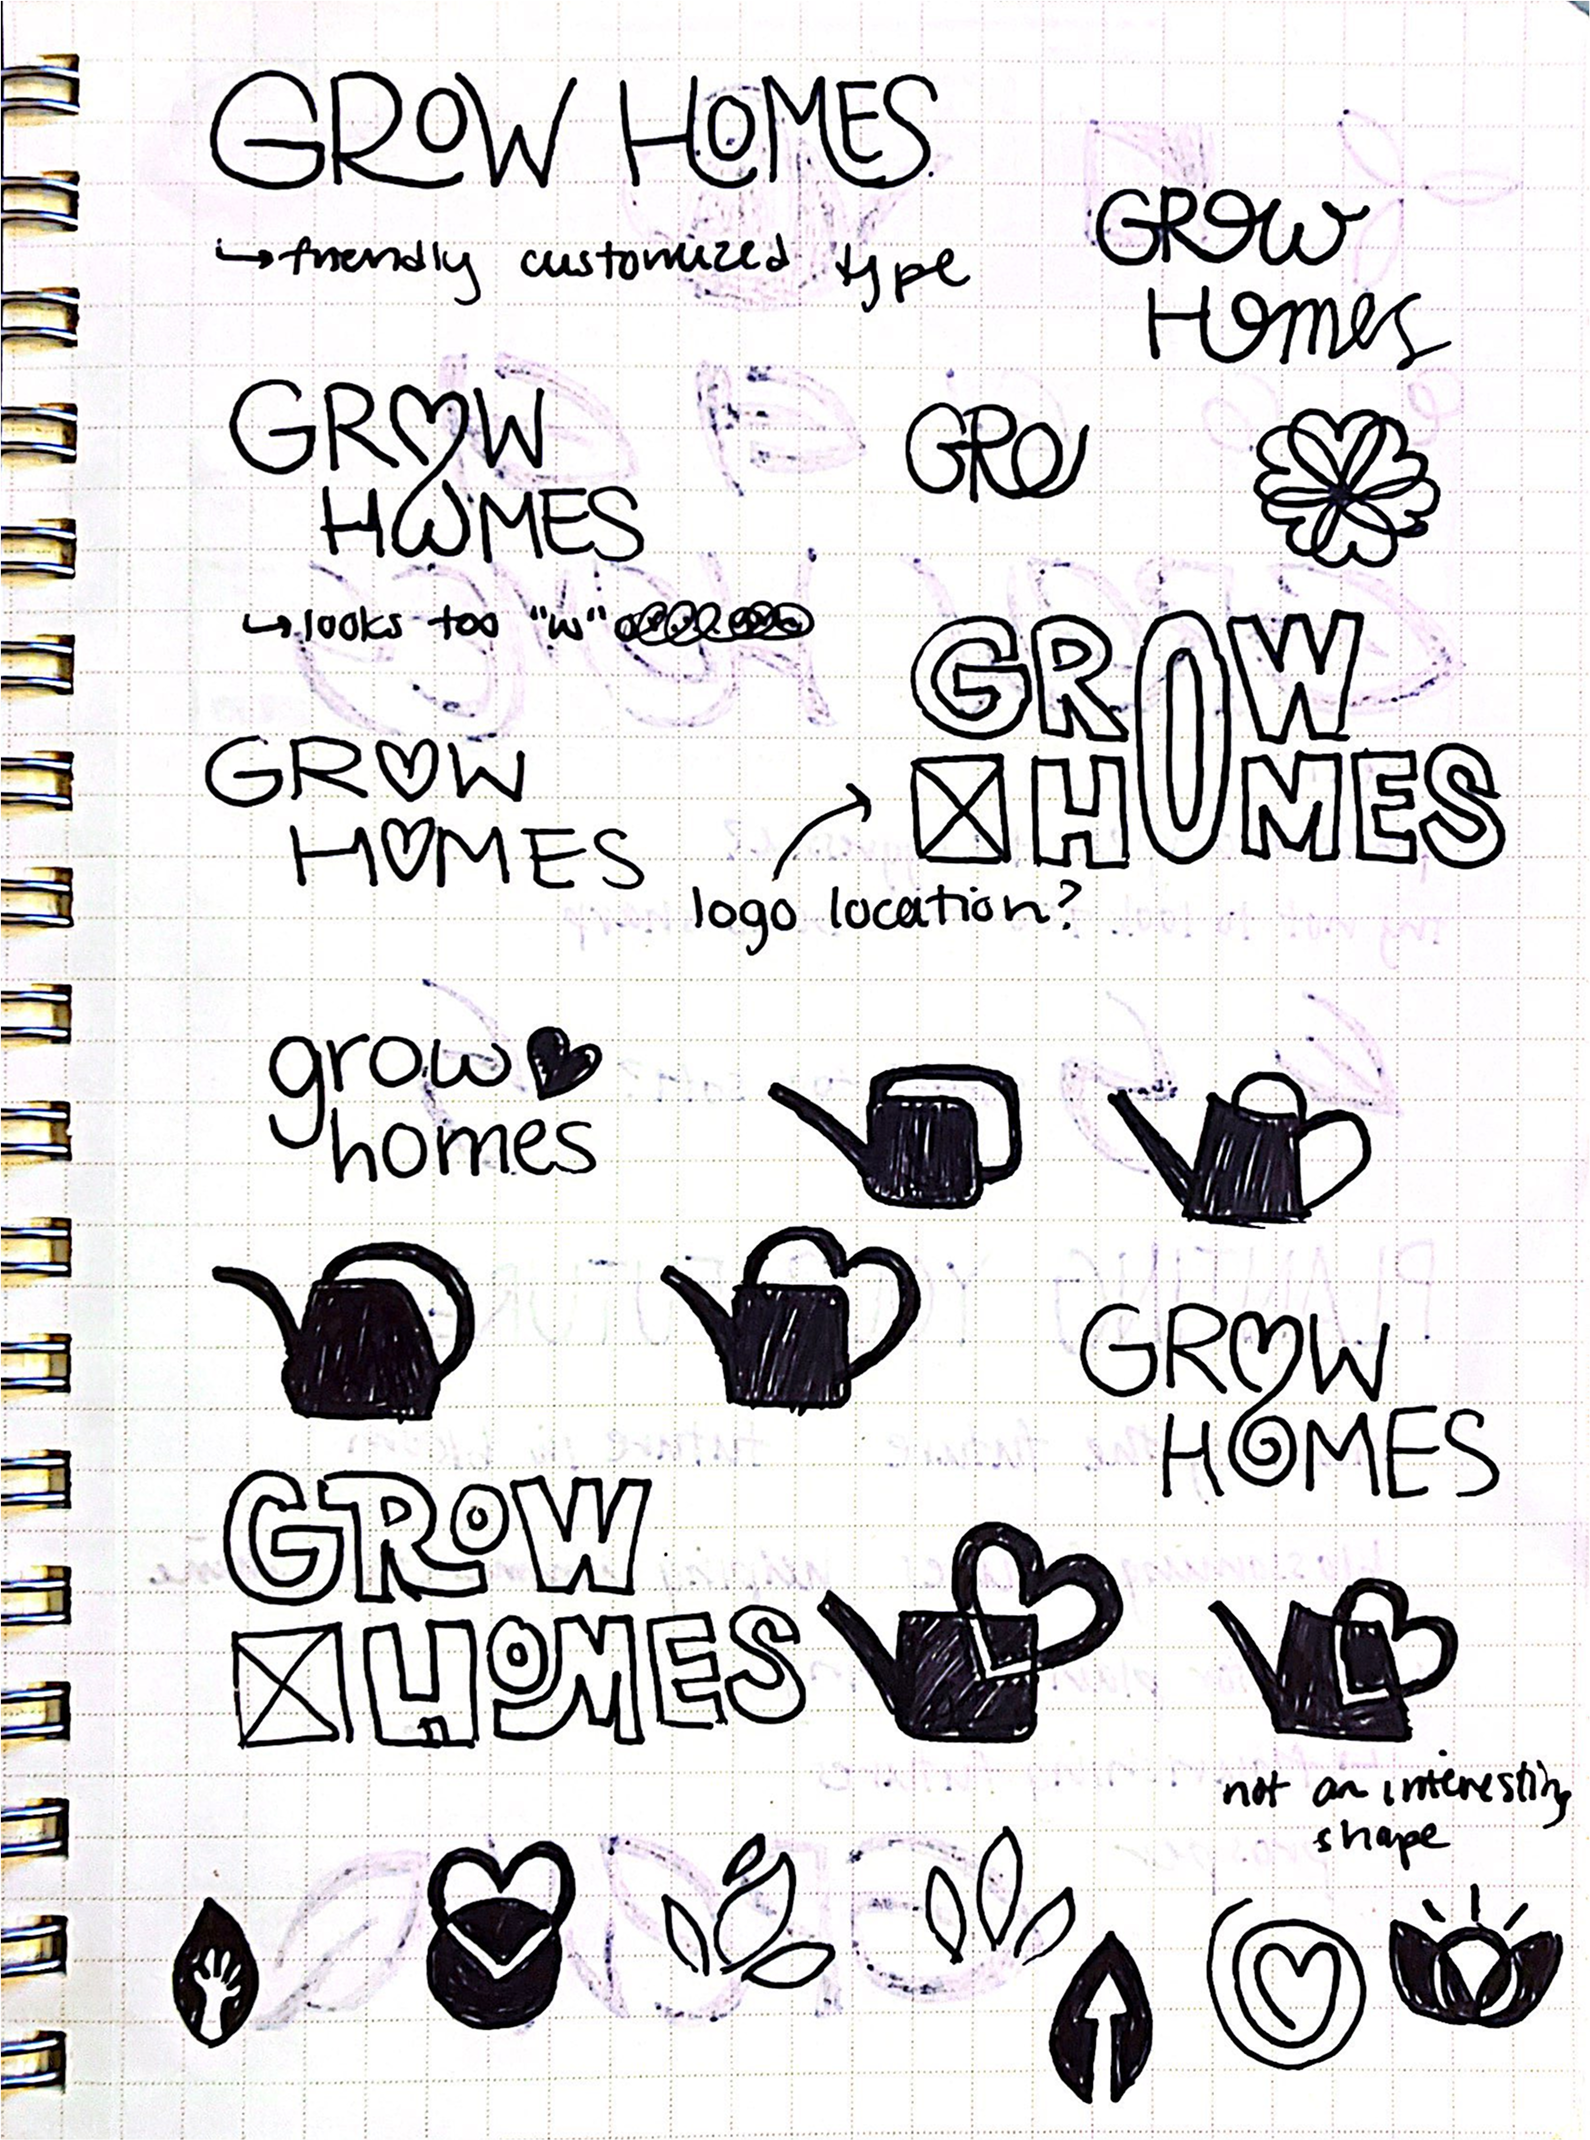 GROW HOMES
↳ friendly customized type
GROW
HOMes
GROW
HOMES
GRO
↳ looks too "w"
GROW
HOMES
GROW
HOMES
logo location?
grow
homes
GROW
HOMES
GROW
HOMES
not an interesting
shape